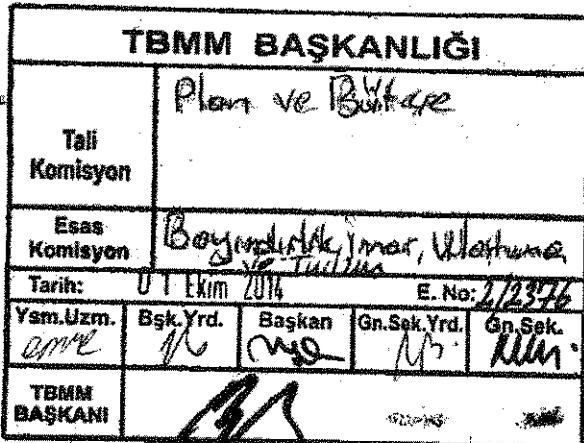 TBMM BAŞKANLIĞI
Tali Komisyon
Plan ve Bütçe
Esas Komisyon
Bayındırlık, İmar, Ulaştırma
ve Turizm
Tarih: 01 Ekim 2014 E. No: 2/2376
Ysm.Uzm. Bşk.Yrd. Başkan Gn.Sek.Yrd. Gn.Sek.
emre
TBMM BAŞKANI